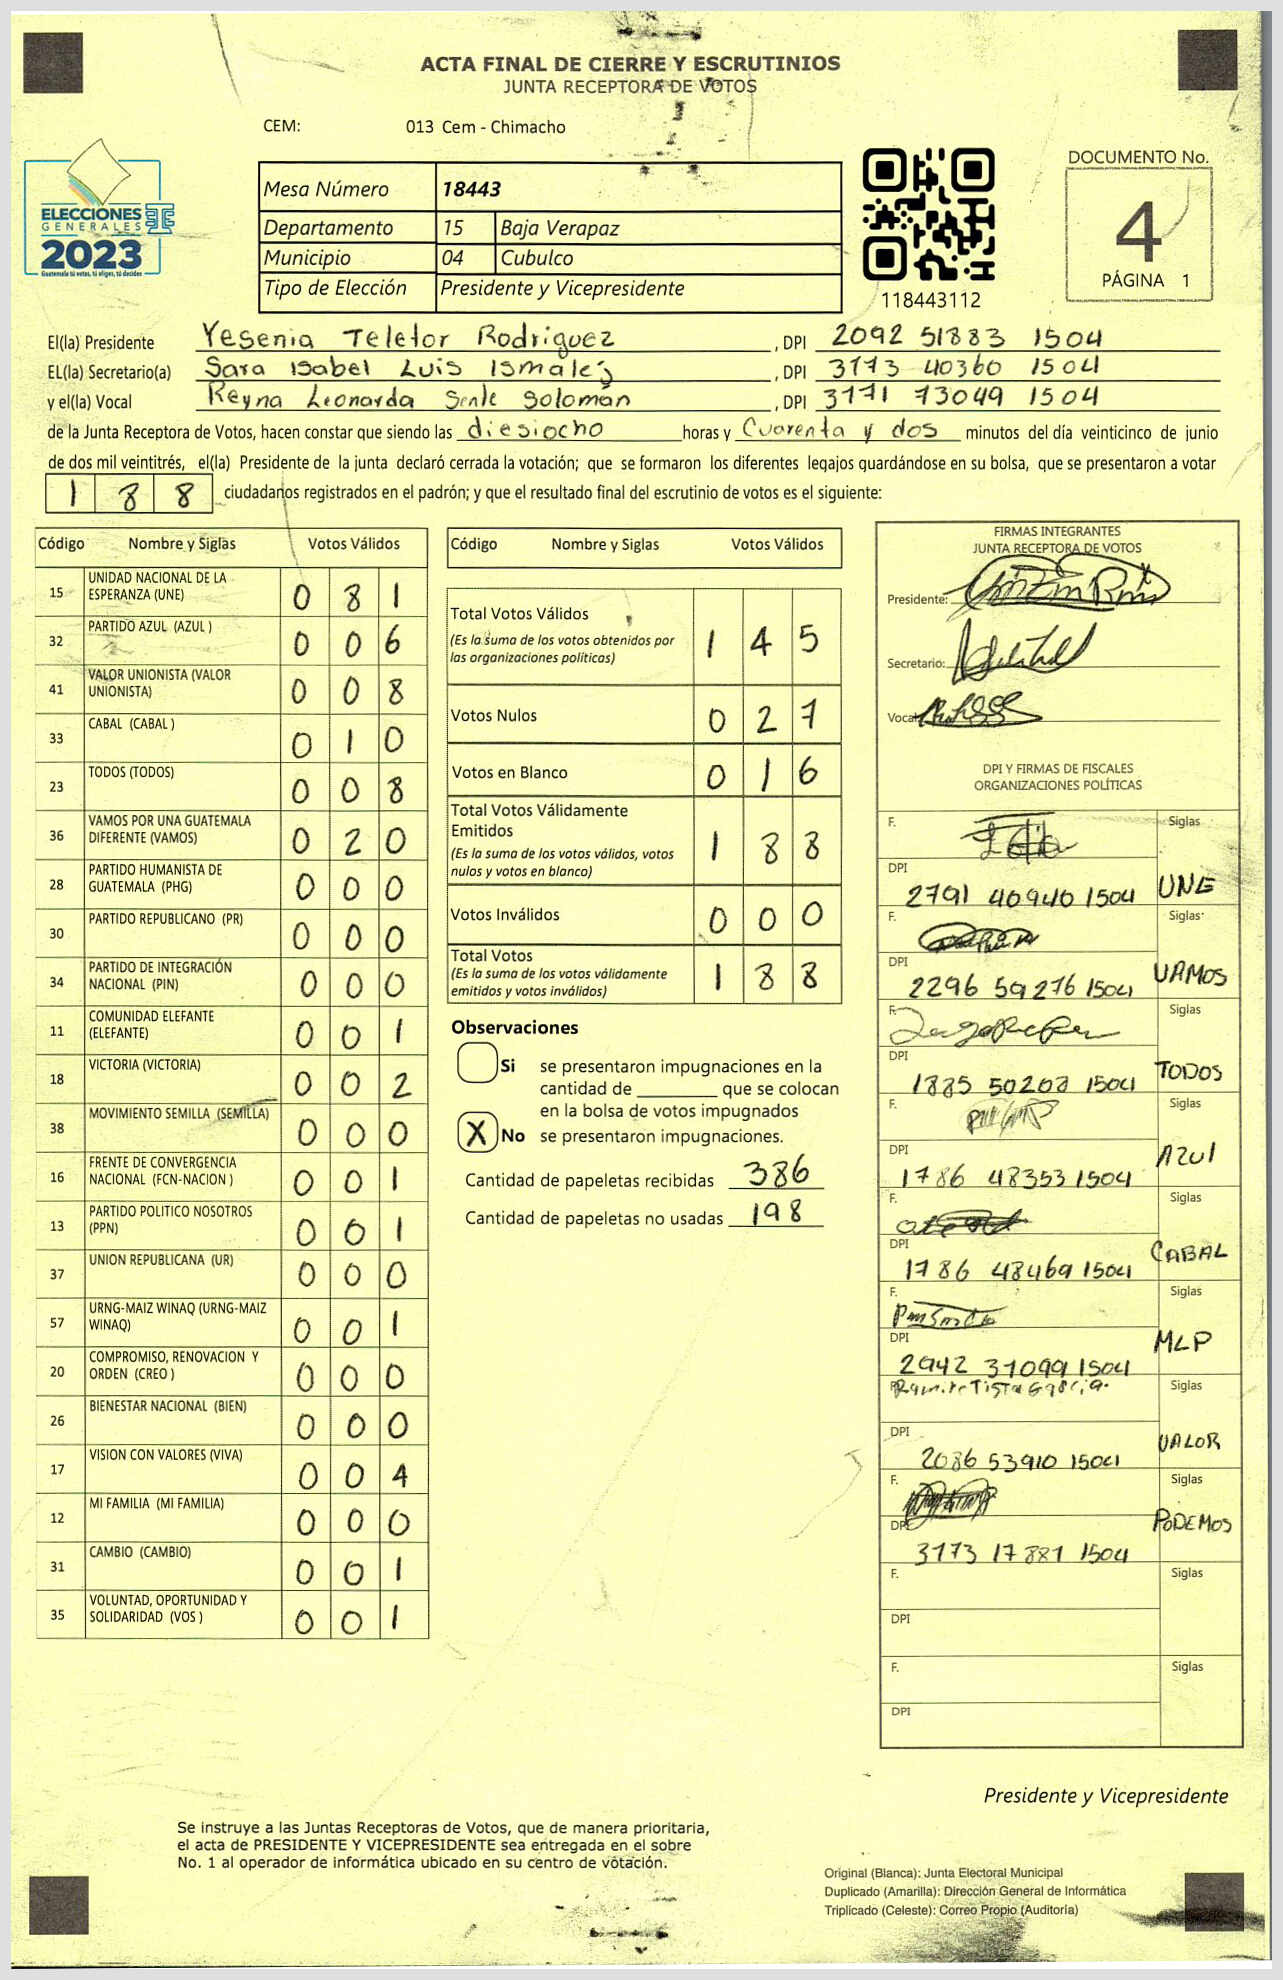 ACTA FINAL DE CIERRE Y ESCRUTINIOS
JUNTA RECEPTORA DE VOTOS
CEM: 013 Cem - Chimacho
ELECCIONES
GENERALES
2023
Guatemala tú votas, tú eliges, tú decides
Mesa Número 18443
Departamento 15 Baja Verapaz
Municipio 04 Cubulco
Tipo de Elección Presidente y Vicepresidente
118443112
DOCUMENTO No.
4
PÁGINA 1
El(la) Presidente Yesenia Teletor Rodriguez, DPI 2092 51883 1504
EL(la) Secretario(a) Sara Isabel Luis Ismalej, DPI 3173 40360 1504
y el(la) Vocal Reyna Leonarda Senle Solomán, DPI 3171 73049 1504
de la Junta Receptora de Votos, hacen constar que siendo las diesiocho horas y Cuarenta y dos minutos del día veinticinco de junio
de dos mil veintitrés, el(la) Presidente de la junta declaró cerrada la votación; que se formaron los diferentes legajos guardándose en su bolsa, que se presentaron a votar
1 8 8 ciudadanos registrados en el padrón; y que el resultado final del escrutinio de votos es el siguiente:
Código Nombre y Siglas Votos Válidos
15 UNIDAD NACIONAL DE LA ESPERANZA (UNE) 0 8 1
32 PARTIDO AZUL (AZUL ) 0 0 6
41 VALOR UNIONISTA (VALOR UNIONISTA) 0 0 8
33 CABAL (CABAL ) 0 1 0
23 TODOS (TODOS) 0 0 8
36 VAMOS POR UNA GUATEMALA DIFERENTE (VAMOS) 0 2 0
28 PARTIDO HUMANISTA DE GUATEMALA (PHG) 0 0 0
30 PARTIDO REPUBLICANO (PR) 0 0 0
34 PARTIDO DE INTEGRACIÓN NACIONAL (PIN) 0 0 0
11 COMUNIDAD ELEFANTE (ELEFANTE) 0 0 1
18 VICTORIA (VICTORIA) 0 0 2
38 MOVIMIENTO SEMILLA (SEMILLA) 0 0 0
16 FRENTE DE CONVERGENCIA NACIONAL (FCN-NACION ) 0 0 1
13 PARTIDO POLITICO NOSOTROS (PPN) 0 0 1
37 UNION REPUBLICANA (UR) 0 0 0
57 URNG-MAIZ WINAQ (URNG-MAIZ WINAQ) 0 0 1
20 COMPROMISO, RENOVACION Y ORDEN (CREO ) 0 0 0
26 BIENESTAR NACIONAL (BIEN) 0 0 0
17 VISION CON VALORES (VIVA) 0 0 4
12 MI FAMILIA (MI FAMILIA) 0 0 0
31 CAMBIO (CAMBIO) 0 0 1
35 VOLUNTAD, OPORTUNIDAD Y SOLIDARIDAD (VOS ) 0 0 1
Código Nombre y Siglas Votos Válidos
Total Votos Válidos 1 4 5
(Es la suma de los votos obtenidos por
las organizaciones políticas)
Votos Nulos 0 2 7
Votos en Blanco 0 1 6
Total Votos Válidamente
Emitidos 1 8 8
(Es la suma de los votos válidos, votos
nulos y votos en blanco)
Votos Inválidos 0 0 0
Total Votos 1 8 8
(Es la suma de los votos válidamente
emitidos y votos inválidos)
Observaciones
Si se presentaron impugnaciones en la
cantidad de ________ que se colocan
en la bolsa de votos impugnados
X No se presentaron impugnaciones.
Cantidad de papeletas recibidas 386
Cantidad de papeletas no usadas 198
FIRMAS INTEGRANTES
JUNTA RECEPTORA DE VOTOS
Presidente:
Secretario:
Vocal
DPI Y FIRMAS DE FISCALES
ORGANIZACIONES POLÍTICAS
F. Siglas
DPI 2791 40940 1504 UNE
F. Siglas
DPI 2296 59276 1504 VAMOS
F. Siglas
DPI 1885 50208 1504 TODOS
F. Siglas
DPI 1786 48353 1504 AZUl
F. Siglas
DPI 1786 48469 1504 CABAL
F. Siglas
DPI 2942 37099 1504 MLP
F. Ramiro Tista García Siglas
DPI 2086 53910 1504 VALOR
F. Siglas
DPI 3173 17881 1504 PODEMOS
F. Siglas
DPI
F. Siglas
DPI
Presidente y Vicepresidente
Se instruye a las Juntas Receptoras de Votos, que de manera prioritaria,
el acta de PRESIDENTE Y VICEPRESIDENTE sea entregada en el sobre
No. 1 al operador de informática ubicado en su centro de votación.
Original (Blanca): Junta Electoral Municipal
Duplicado (Amarilla): Dirección General de Informática
Triplicado (Celeste): Correo Propio (Auditoría)